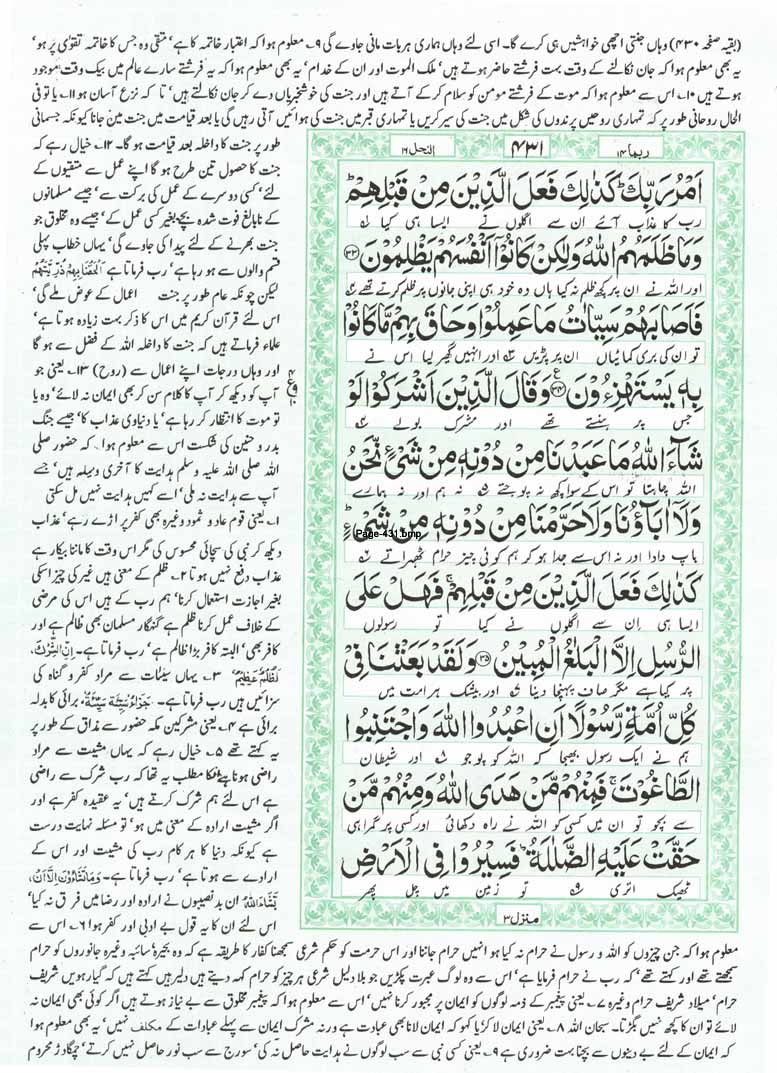 (بقیہ صفحہ ۴۳۰) وہاں جنتی اچھی خواہشیں ہی کرے گا۔ اسی لئے وہاں ہماری ہر بات مانی جاوے گی ۹۔ معلوم ہوا کہ اعتبار خاتمہ کا ہے' متقی وہ جس کا خاتمہ تقوٰی پر ہو'
یہ بھی معلوم ہوا کہ جان نکالنے کے وقت بہت فرشتے حاضر ہوتے ہیں' ملک الموت اور ان کے خدام' یہ بھی معلوم ہوا کہ یہ فرشتے سارے عالم میں بیک وقت موجود
ہوتے ہیں ۱۰۔ اس سے معلوم ہوا کہ موت کے فرشتے مومن کو سلام کر کے آتے ہیں اور جنت کی خوشخبریاں دے کر جان نکالتے ہیں' تا کہ نزع آسان ہو ۱۱۔ یا تو فی
الحال روحانی طور پر کہ تمہاری روحیں پرندوں کی شکل میں جنت کی سیر کریں یا تمہاری قبر میں جنت کی ہوائیں آتی رہیں گی یا بعد قیامت میں جنت میں جانا کیونکہ جسمانی
طور پر جنت کا داخلہ بعد قیامت ہو گا۔ ۱۲۔ خیال رہے کہ
جنت کا حصول تین طرح ہو گا اپنے عمل سے متقیوں کے
لئے' کسی دوسرے کے عمل کی برکت سے' جیسے مسلمانوں
کے نابالغ فوت شدہ بچے بغیر کسی عمل کے' جیسے وہ مخلوق جو
جنت بھرنے کے لئے پیدا کی جاوے گی' یہاں خطاب پہلی
قسم والوں سے ہو رہا ہے' رب فرماتا ہے اَلْحَقْنَا بِهِمْ ذُرِّيَّتَهُمْ
لیکن چونکہ عام طور پر جنت اعمال کے عوض ملے گی'
اس لئے قرآن کریم میں اس کا ذکر بہت زیادہ ہوتا ہے'
علماء فرماتے ہیں کہ جنت کا داخلہ اللہ کے فضل سے ہو گا
اور وہاں درجات اپنے اعمال سے (روح) ۱۳۔ یعنی جو
آپ کو دیکھ کر آپ کا کلام سن کر بھی ایمان نہ لائے' وہ یا
تو موت کا انتظار کر رہا ہے' یا دنیاوی عذاب کا' جیسے جنگ
بدر و حنین کی شکست اس سے معلوم ہوا کہ حضور صلی
اللہ علیہ وسلم ہدایت کا آخری وسیلہ ہیں' جسے
آپ سے ہدایت نہ ملی' اسے کہیں ہدایت نہیں مل سکتی
۱۔ یعنی قوم عاد و ثمود وغیرہ بھی کفر پر اڑے رہے' عذاب
دیکھ کر نبی کی سچائی محسوس کی مگر اس وقت کا ماننا بیکار ہے
عذاب دفع نہیں ہوتا ۲۔ ظلم کے معنی ہیں غیر کی چیز اسکی
بغیر اجازت استعمال کرنا' ہم رب کے ہیں اس کی مرضی
کے خلاف عمل کرنا ظلم ہے گنہگار مسلمان بھی ظالم ہے اور
کافر بھی' البتہ کافر بڑا ظالم ہے' رب فرماتا ہے۔ اِنَّ الشِّرْكَ
لَظُلْمٌ عَظِيْمٌ ۳۔ یہاں سیئات سے مراد کفر و گناہ کی
سزائیں ہیں رب فرماتا ہے۔ جَزٰٓؤُا سَيِّئَةٍ سَيِّئَةٌ۔ برائی کا بدلہ
برائی ہے ۴۔ یعنی مشرکین مکہ حضور سے مذاق کے طور پر
یہ کہتے تھے ۵۔ خیال رہے کہ یہاں مشیت سے مراد
راضی ہونا ہے' انکا مطلب یہ تھا کہ رب شرک سے راضی
ہے اس لئے ہم شرک کرتے ہیں' یہ عقیدہ کفر ہے اور
اگر مشیت ارادہ کے معنی میں ہو' تو مسئلہ نہایت درست
ہے کیونکہ دنیا کا ہر کام رب کی مشیت اور اس کے
ارادے سے ہوتا ہے' رب فرماتا ہے۔ وَمَا تَشَآءُوْنَ اِلَّآ اَنْ
يَّشَآءَ اللّٰهُ' ان بدنصیبوں نے ارادہ اور رضا میں فرق نہ کیا'
اس لئے ان کا یہ قول بے ادبی اور کفر ہوا ۶۔ اس سے
ربما ۱۴
۴۳۱
النحل ۱۶
اَمْرُ رَبِّكَ ؕ كَذٰلِكَ فَعَلَ الَّذِيْنَ مِنْ قَبْلِهِمْ ؕ
رب کا عذاب آئے ان سے اگلوں نے ایسا ہی کیا
وَمَا ظَلَمَهُمُ اللّٰهُ وَلٰكِنْ كَانُوْۤا اَنْفُسَهُمْ يَظْلِمُوْنَ ۝۳۳
اور اللہ نے ان پر کچھ ظلم نہ کیا ہاں وہ خود ہی اپنی جانوں پر ظلم کرتے تھے
فَاَصَابَهُمْ سَيِّاٰتُ مَا عَمِلُوْا وَحَاقَ بِهِمْ مَّا كَانُوْا
تو ان کی بری کمائیاں ان پر پڑیں اور انہیں گھیر لیا اس نے
بِهٖ يَسْتَهْزِءُوْنَ ۝۳۴ وَقَالَ الَّذِيْنَ اَشْرَكُوْا لَوْ
جس پر ہنستے تھے اور مشرک بولے
شَآءَ اللّٰهُ مَا عَبَدْنَا مِنْ دُوْنِهٖ مِنْ شَيْءٍ نَّحْنُ
اللہ چاہتا تو اس کے سوا کچھ نہ پوجتے نہ ہم اور نہ ہمارے
وَلَاۤ اٰبَآؤُنَا وَلَا حَرَّمْنَا مِنْ دُوْنِهٖ مِنْ شَيْءٍ ؕ
Page-431.bmp
باپ دادا اور نہ اس سے جدا ہو کر ہم کوئی چیز حرام ٹھہراتے
كَذٰلِكَ فَعَلَ الَّذِيْنَ مِنْ قَبْلِهِمْ ۚ فَهَلْ عَلَى
ایسا ہی ان سے اگلوں نے کیا تو رسولوں
الرُّسُلِ اِلَّا الْبَلٰغُ الْمُبِيْنُ ۝۳۵ وَلَقَدْ بَعَثْنَا فِيْ
پر کیا ہے مگر صاف پہنچا دینا اور بیشک ہر امت میں
كُلِّ اُمَّةٍ رَّسُوْلًا اَنِ اعْبُدُوا اللّٰهَ وَاجْتَنِبُوا
ہم نے ایک رسول بھیجا کہ اللہ کو پوجو اور شیطان
الطَّاغُوْتَ ۚ فَمِنْهُمْ مَّنْ هَدَى اللّٰهُ وَمِنْهُمْ مَّنْ
سے بچو تو ان میں کسی کو اللہ نے راہ دکھائی اور کسی پر گمراہی
حَقَّتْ عَلَيْهِ الضَّلٰلَةُ ؕ فَسِيْرُوْا فِي الْاَرْضِ
ٹھیک اتری تو زمین میں چل پھر
منزل ۳
معلوم ہوا کہ جن چیزوں کو اللہ و رسول نے حرام نہ کیا ہو انہیں حرام جاننا اور اس حرمت کو حکم شرعی سمجھنا کفار کا طریقہ ہے کہ وہ بحیرہ' سائبہ وغیرہ جانوروں کو حرام
سمجھتے تھے اور کہتے تھے' کہ رب نے حرام فرمایا ہے' اس سے وہ لوگ عبرت پکڑیں جو بلا دلیل شرعی ہر چیز کو حرام کہہ دیتے ہیں دلیر ہیں کہتے ہیں کہ گیارہویں شریف
حرام' میلاد شریف حرام وغیرہ ۷۔ یعنی پیغمبر کے ذمہ لوگوں کو ایمان پر مجبور کرنا نہیں' اس سے معلوم ہوا کہ پیغمبر مخلوق سے بے نیاز ہوتے ہیں اگر کوئی بھی ایمان نہ
لائے تو ان کا کچھ نہیں بگڑتا۔ سبحان اللہ ۸۔ یعنی ایمان لا کر یا کہو کہ ایمان لانا بھی عبادت ہے ورنہ مشرک ایمان سے پہلے عبادات کے مکلف نہیں' یہ بھی معلوم ہوا
کہ ایمان کے لئے بے دینوں سے بچنا بہت ضروری ہے ۹۔ یعنی کسی نبی سے سب لوگوں نے ہدایت حاصل نہ کی' سورج سے سب نور حاصل نہیں کرتے' چمگادڑ محروم